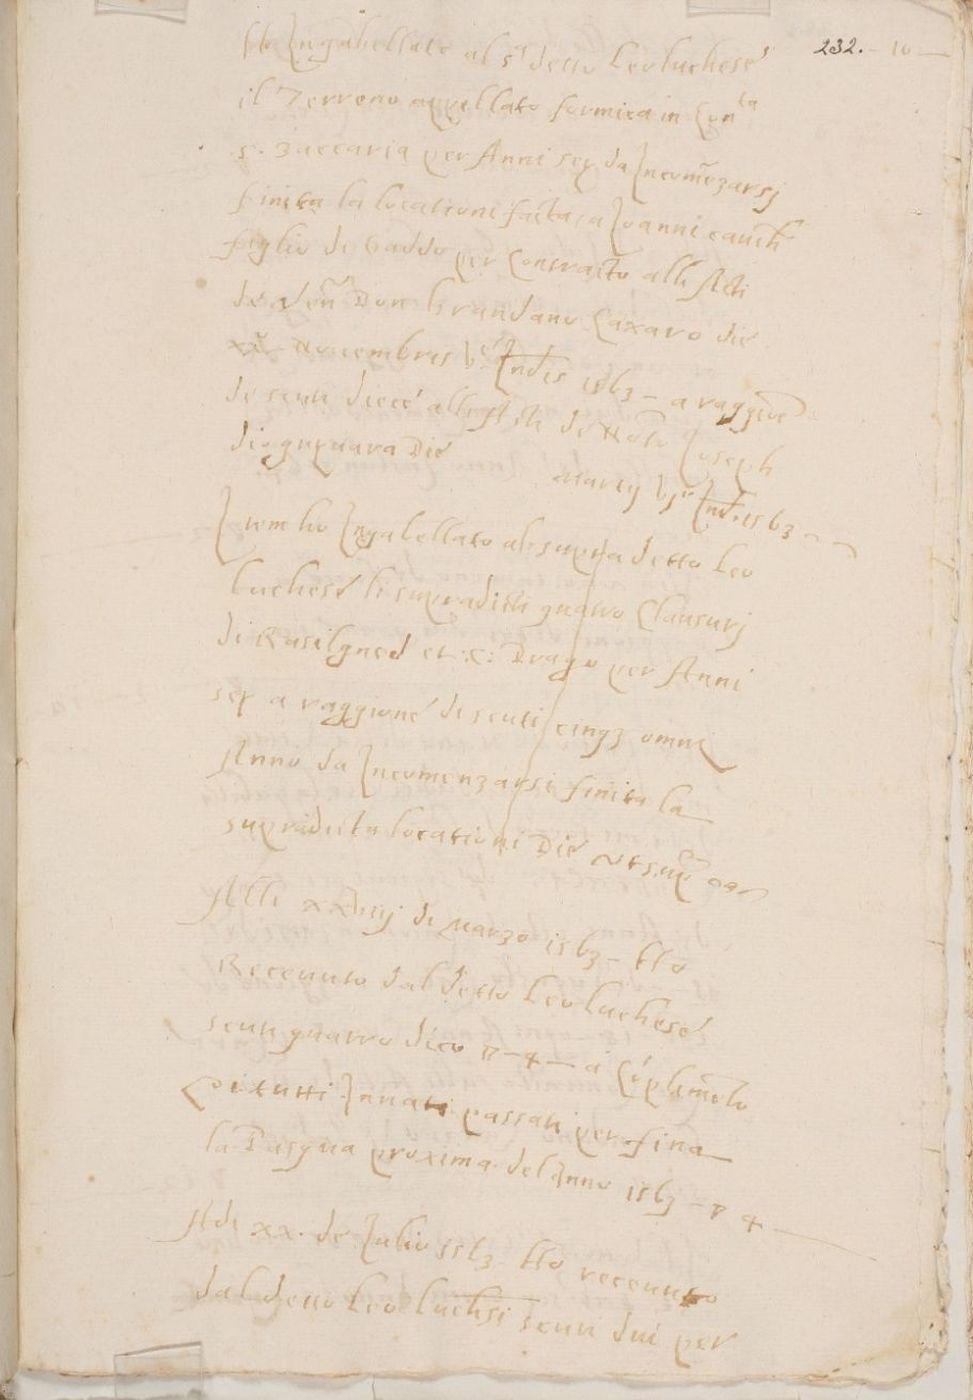 232. - 10 -
Ho Ingabellato al s.r detto Leo luchese
il Terreno appellato formica in Con.ta
S. Zaccaria per Anni sey da Incomezarsj
finita la locationi facta a Joanni
figlio de baddo per Contracto alli Acti
de Ven Don brandano Caxaro die
xx Novembris Indis 1563 - a raggione
de scuti diece alli Acti de Noto Joseph
die Marcij Ind. 1563
Item ho Ingabellato al supra detto Leo
luchese li supradicti quatro Clausurj
di Rasilgned et Drago per Anni
sey a raggione di scuti cinq3 omni
Anno da Incomenzarsi finita la
supradicta locationi Die
Alli xxviiij di Marzo 1563 - Ho
Receuuto dal detto Leo luchese
scuti quatro dico - 4 - a Coplimeto
tutti passati per fina
la Pasqua proxima del Anno 1563 - 4 -
Adi xx. de Julio 1563 Ho receuuto
dal detto Leo luchesi scuti dui per